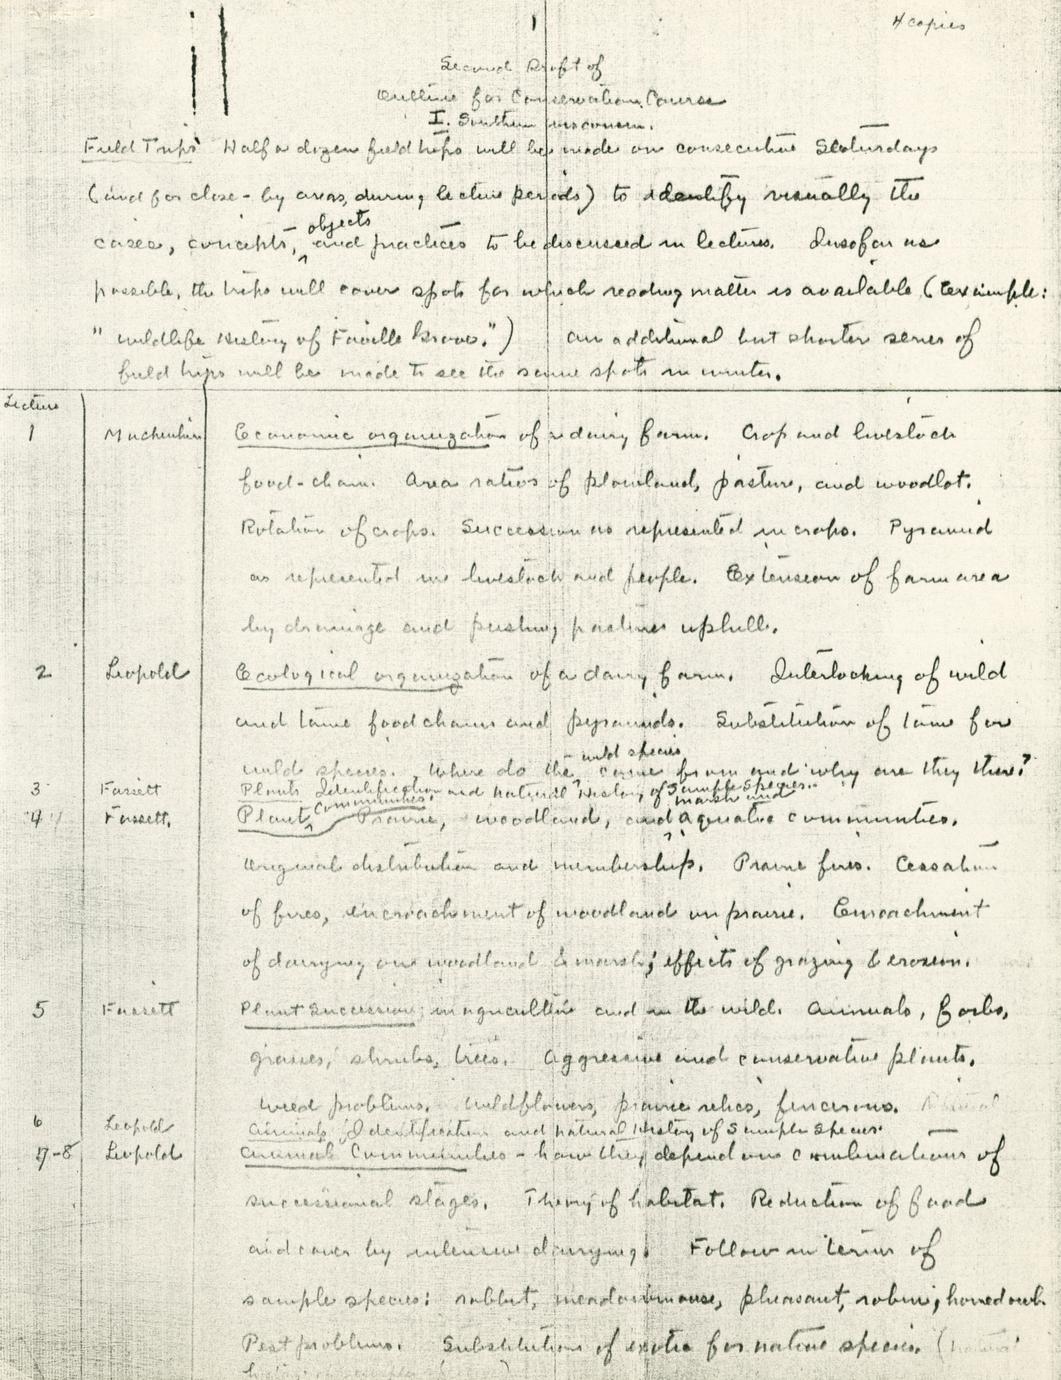 1
4 copies
Second Draft of
Outline for Conservation Course
I. Southern Wisconsin.
Field Trips Half a dozen field trips will be made on consecutive Saturdays
(and for close-by areas, during lecture periods) to identify visually the
cases, concepts, objects and practices to be discussed in lectures. Insofar as
possible, the trips will cover spots for which reading matter is available (example:
"Wildlife History of Faville Grove.") An additional but shorter series of
field trips will be made to see the same spots in winter.
Lecture
1 Economic organization of a dairy farm. Crop and livestock
food-chain. Area ratios of plowland, pasture, and woodlot.
Rotation of crops. Succession as represented in crops. Pyramid
as represented in livestock and people. Extension of farm area
by drainage and pushing pastures uphill.
2 Leopold Ecological organization of a dairy farm. Interlocking of wild
and tame food chains and pyramids. Substitution of tame for
wild species. Where do the wild species come from and why are they there?
3 Fassett Plants Identification and Natural History of Sample Species.
4 Fassett. Plant Communities. Prairie, woodland, and marsh and aquatic communities.
Original distribution and membership. Prairie fires. Cessation
of fires, encroachment of woodland on prairie. Encroachment
of dairying on woodland & marsh; effects of grazing & erosion.
5 Fassett Plant Succession in agriculture and in the wild. Annuals, forbs,
grasses, shrubs, trees. Aggressive and conservative plants.
Weed problems. Wildflowers, prairie relics, fencerows.
6 Leopold Animals, Identification and Natural History of Sample Species.
7-8 Leopold Animal Communities - how they depend on combinations of
successional stages. Theory of habitat. Reduction of food
and cover by intensive dairying. Follow in terms of
sample species: rabbit, meadowmouse, pheasant, robin, horned owl.
Pest problems. Substitution of exotic for native species.